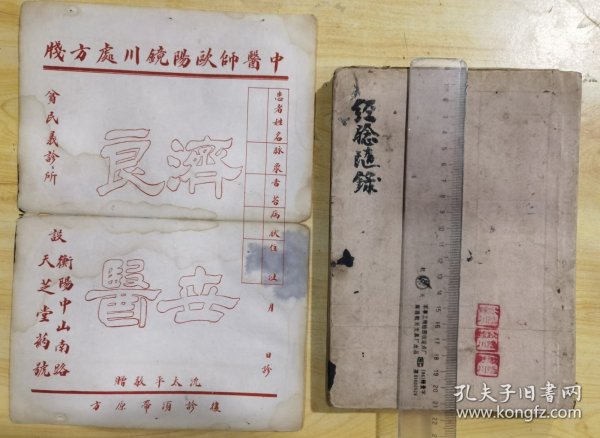 中醫師歐陽鏡川處方牋
患者姓名
脉象
舌苔
病状
住址
月
日診
濟世
良醫
貧民義診所
設衡陽中山南路
天芝堂葯號
沈太平敬贈
復診須帶原方
經驗隨錄
孔夫子旧书网
www.kongfz.com